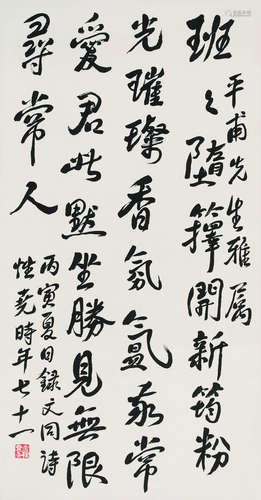 班〻墮籜開新筠粉
光璀璨香氛氳我常
愛君此默坐勝見無限
尋常人
平甫先生雅屬
丙寅夏日錄文同詩
性堯時年七十一